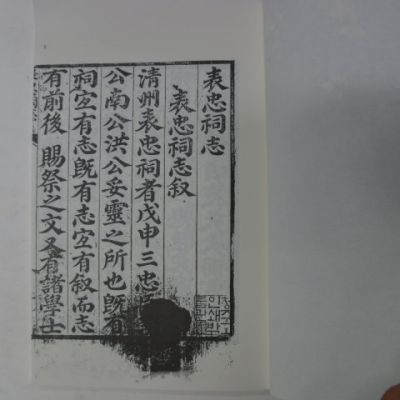 表忠祠志
表忠祠志叙
清州表忠祠者戊申三忠
公南公洪公妥靈之所也既有
祠宐有志既有志宐有叙而志
有前後 賜祭之文又有諸學士
청주고
인쇄박